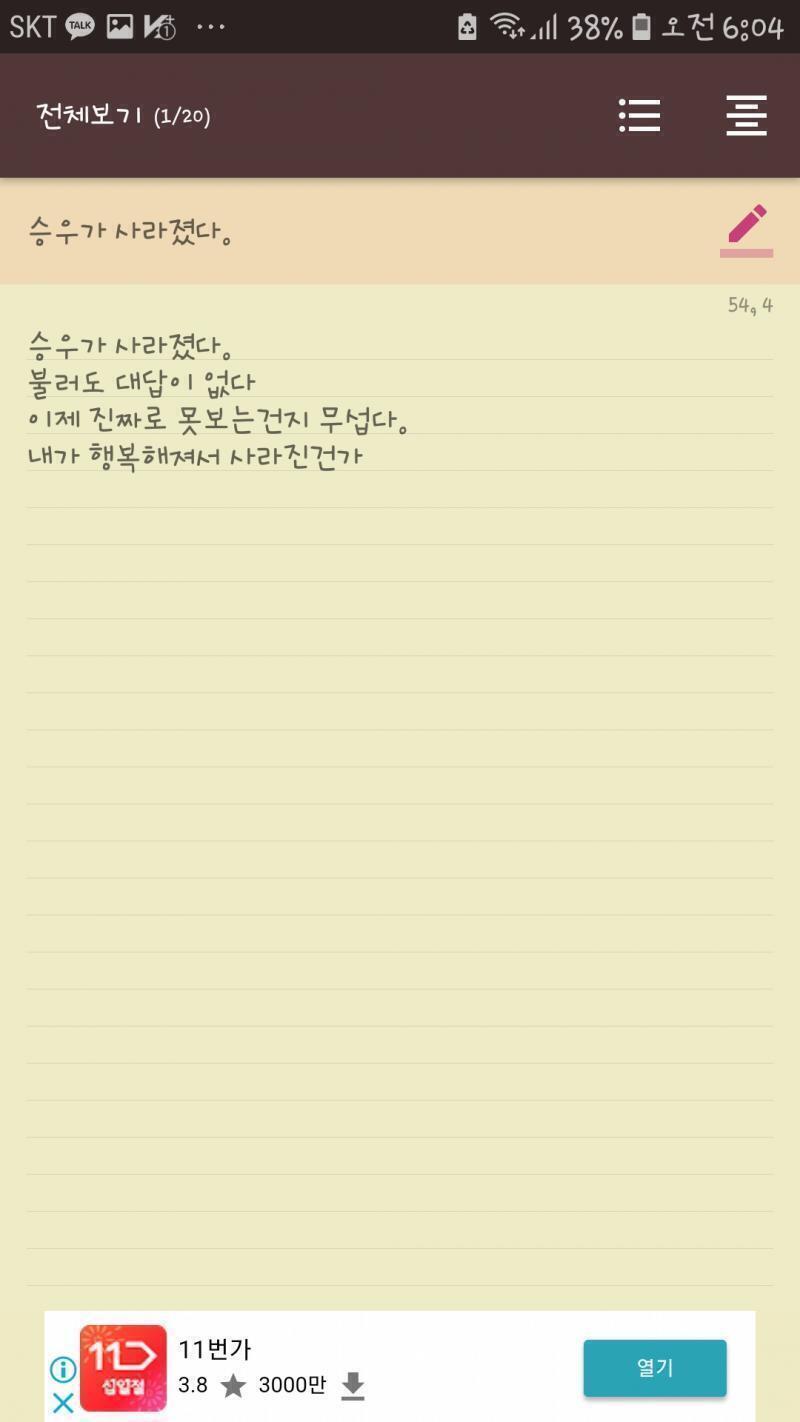 SKT TALK 38% 오전 6:04
전체보기 (1/20)
승우가 사라졌다。
54, 4
승우가 사라졌다。
불러도 대답이 없다
이제 진짜로 못보는건지 무섭다。
내가 행복해져서 사라진건가
11번가
3.8 3000만
십일절
열기